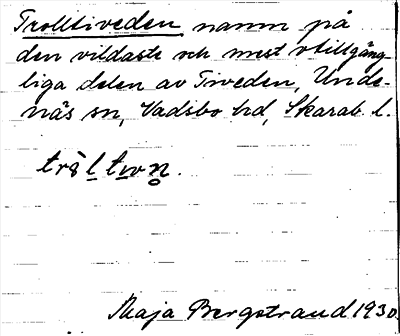 Trolltiveden, namn på
den vildaste och mest otillgäng-
liga delen av Tiveden, Unde-
näs sn, Vadsbo hd, Skarab. l.
Maja Bergstrand 1930